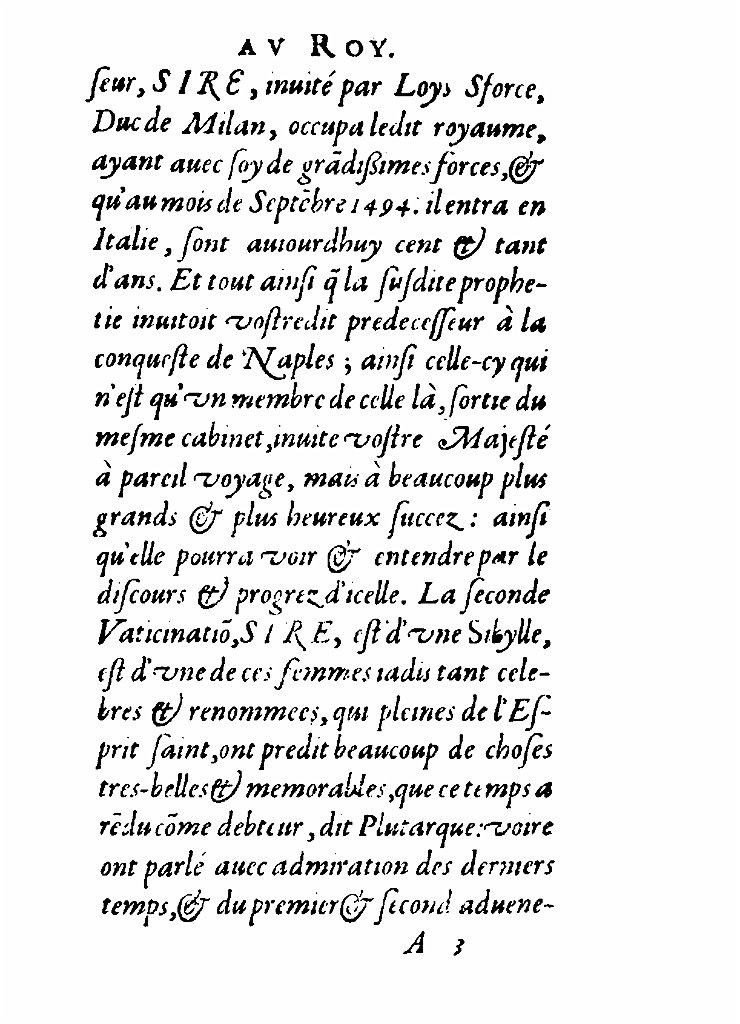 AV ROY.
ſeur, SIRE, inuité par Loys Sforce,
Duc de Milan, occupa ledit royaume,
ayant auec ſoy de grãdiſsimes forces, &
qu'au mois de Septẽbre 1494. il entra en
Italie, ſont auiourdhuy cent & tant
d'ans. Et tout ainſi q̃ la ſuſdite prophe-
tie inuitoit voſtredit predeceſſeur à la
conqueſte de Naples ; ainſi celle-cy qui
n'eſt qu'vn membre de celle là, ſortie du
meſme cabinet, inuite voſtre Majeſté
à pareil voyage, mais à beaucoup plus
grands & plus heureux ſuccez : ainſi
qu'elle pourra voir & entendre par le
diſcours & progrez d'icelle. La ſeconde
Vaticinatiõ, SIRE, eſt d'vne Sibylle,
eſt d'vne de ces femmes iadis tant cele-
bres & renommees, qui pleines de l'Eſ-
prit ſaint, ont predit beaucoup de choſes
tres-belles & memorables, que ce temps a
rẽdu cõme debteur, dit Plutarque: voire
ont parlé auec admiration des derniers
temps, & du premier & ſecond aduene-
A 3